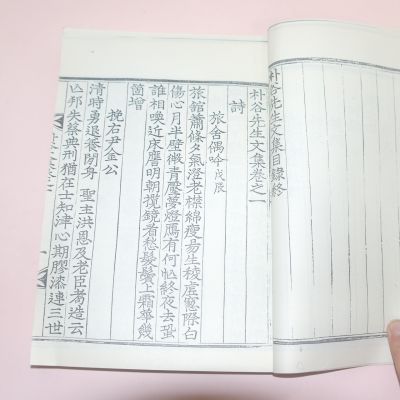 朴谷先生文集目錄終
朴谷先生文集卷之一
詩
旅舍偶吟戊辰
旅舘蕭條夕氣澄老襟綿瘦易生稜虛窓際白
傷心月半壁微靑壓夢燈鴈有何忙終夜去蛩
誰相喚近床譍明朝攬鏡看愁髮鬢上霜華幾
箇增
挽石尹金公
淸時勇退養閒身 聖主洪恩及老臣耆造云
亾邦失祭典刑猶在士知津心期膠漆連三世